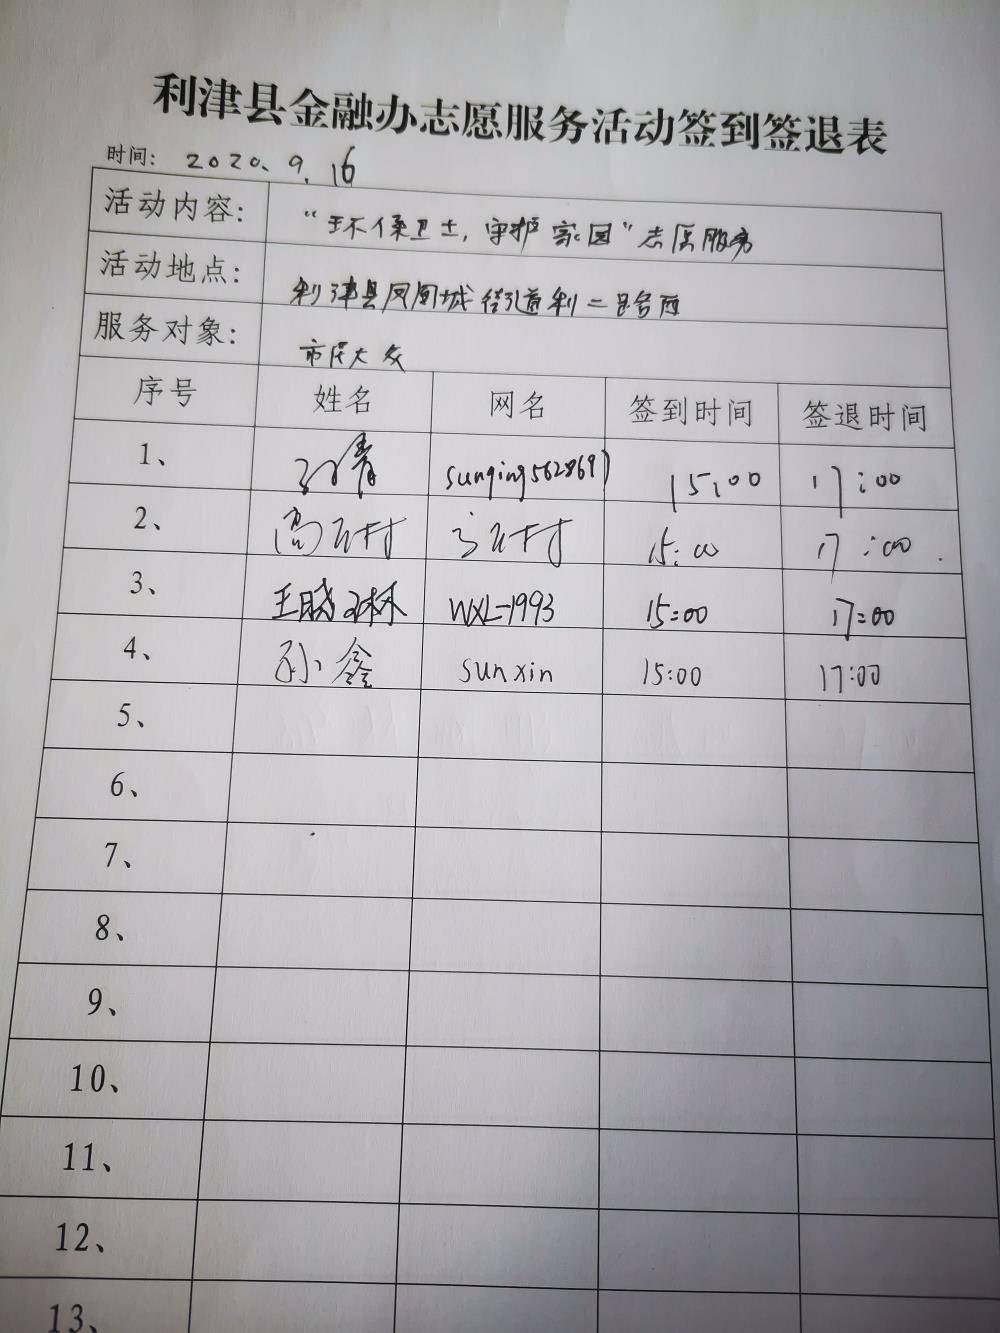 利津县金融办志愿服务活动签到签退表
时间: 2020.9.16
活动内容: “环保卫士,守护家园”志愿服务
活动地点: 利津县凤凰城街道利二路西
服务对象: 市民大众
序号 姓名 网名 签到时间 签退时间
1、 孙青 15:00 17:00
2、 高 村 15:00 17:00
3、 王晓琳 WXL-1993 15:00 17:00
4、 孙鑫 sunxin 15:00 17:00
5、
6、
7、
8、
9、
10、
11、
12、
13、